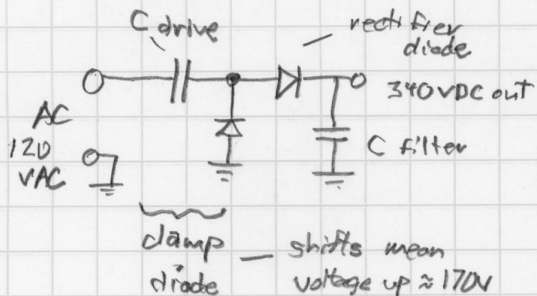 C drive
rectifier
diode
340 VDC out
AC
120
VAC
C filter
clamp
diode
— shifts mean
voltage up ≈ 170V